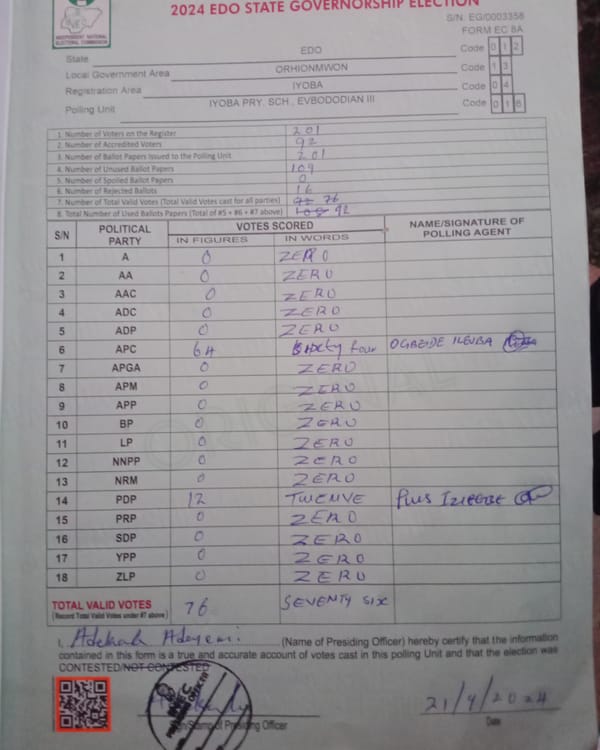 2024 EDO STATE GOVERNORSHIP ELECTION
INEC
INDEPENDENT NATIONAL
ELECTORAL COMMISSION
S/N. EG/0003358
FORM EC 8A
State EDO Code 0 1 2
Local Government Area ORHIONMWON Code 1 3
Registration Area IYOBA Code 0 4
Polling Unit IYOBA PRY. SCH., EVBODODIAN III Code 0 1 8
1. Number of Voters on the Register 201
2. Number of Accredited Voters 92
3. Number of Ballot Papers Issued to the Polling Unit 201
4. Number of Unused Ballot Papers 109
5. Number of Spoiled Ballot Papers 0
6. Number of Rejected Ballots 16
7. Number of Total Valid Votes (Total Valid Votes cast for all parties) 76
8. Total Number of Used Ballots Papers (Total of #5 + #6 + #7 above) 92
S/N POLITICAL PARTY VOTES SCORED NAME/SIGNATURE OF POLLING AGENT
IN FIGURES IN WORDS
1 A 0 ZERO
2 AA 0 ZERO
3 AAC 0 ZERO
4 ADC 0 ZERO
5 ADP 0 ZERO
6 APC 64 Sixty four OGBEIDE
7 APGA 0 ZERO
8 APM 0 ZERO
9 APP 0 ZERO
10 BP 0 ZERO
11 LP 0 ZERO
12 NNPP 0 ZERO
13 NRM 0 ZERO
14 PDP 12 TWENVE Pius
15 PRP 0 ZERO
16 SDP 0 ZERO
17 YPP 0 ZERO
18 ZLP 0 ZERO
TOTAL VALID VOTES 76 SEVENTY SIX
(Record Total Valid Votes under #7 above)
ORIGINAL
I, Adeyemi (Name of Presiding Officer) hereby certify that the information
contained in this form is a true and accurate account of votes cast in this polling Unit and that the election was
CONTESTED/NOT CONTESTED
INEC
PRESIDING OFFICER
21/9/2024
Sign/Stamp of Presiding Officer Date